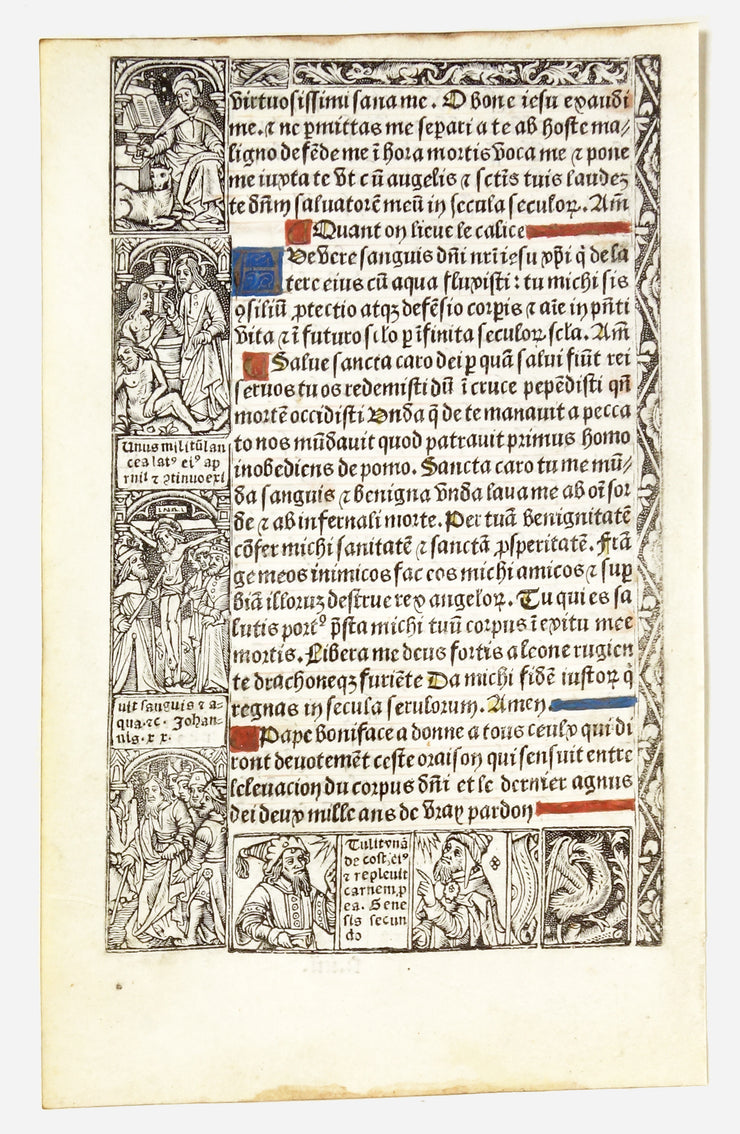 virtuosissimi sana me. O bone iesu exaudi
me. ⁊ ne ꝑmittas me separi a te ab hoste ma⸗
ligno defēde me ī hora mortis voca me ⁊ pone
me iuxta te vt cū angelis ⁊ sctīs tuis laudez
te dn̄m salvatorē meū in secula seculoꝝ. Am̄
Quant on lieue le calice
AVe vere sanguis dn̄i nrī iesu xp̄i q̇ de la
tere eius cū aqua fluxisti: tu michi sis
ꝯsiliū ꝓtectio atqꝫ defēsio corpis ⁊ aīe in pn̄ti
vita ⁊ ī futuro sclo ꝑ īfinita seculoꝝ scla. Am̄
Salue sancta caro dei ꝑ quā salui fiūt rei
seruos tuos redemisti dū ī cruce pepēdisti qn̄
mortē occidisti vnda q̄ de te manauit a pecca
to nos mūdauit quod patrauit primus homo
inobediens de pomo. Sancta caro tu me mū⸗
da sanguis ⁊ benigna vnda laua me ab oī sor
de ⁊ ab infernali morte. Per tuā benignitatē
cōfer michi sanitatē ⁊ sanctā ꝓsperitatē. frā
ge meos inimicos fac eos michi amicos ⁊ suꝑ
biā illoruz destrue rex angeloꝝ. Tu qui es sa
lutis portꝰ p̄sta michi tuū corpus ī exitu mee
mortis. Libera me deus fortis a leone rugien
te drachoneqꝫ furiēte Da michi fidē iustoꝝ q̇
regnas in secula seculorum. Amen.
Pape boniface a donne a tous ceulx qui di
ront deuotemēt ceste oraison qui sensuit entre
leleuacion du corpus dn̄i et le dernier agnus
dei deux mille ans de vray pardon
Unus militū lan
cea latꝰ eiꝰ ap
ruit ⁊ ꝯtinuo exi
INRI
uit sanguis ⁊ a⸗
qua. ⁊c. Johan⸗
nis. x x.
Tulit vnā
de cost. eiꝰ
⁊ repleuit
carnem p
ea. Gene
sis secun
do